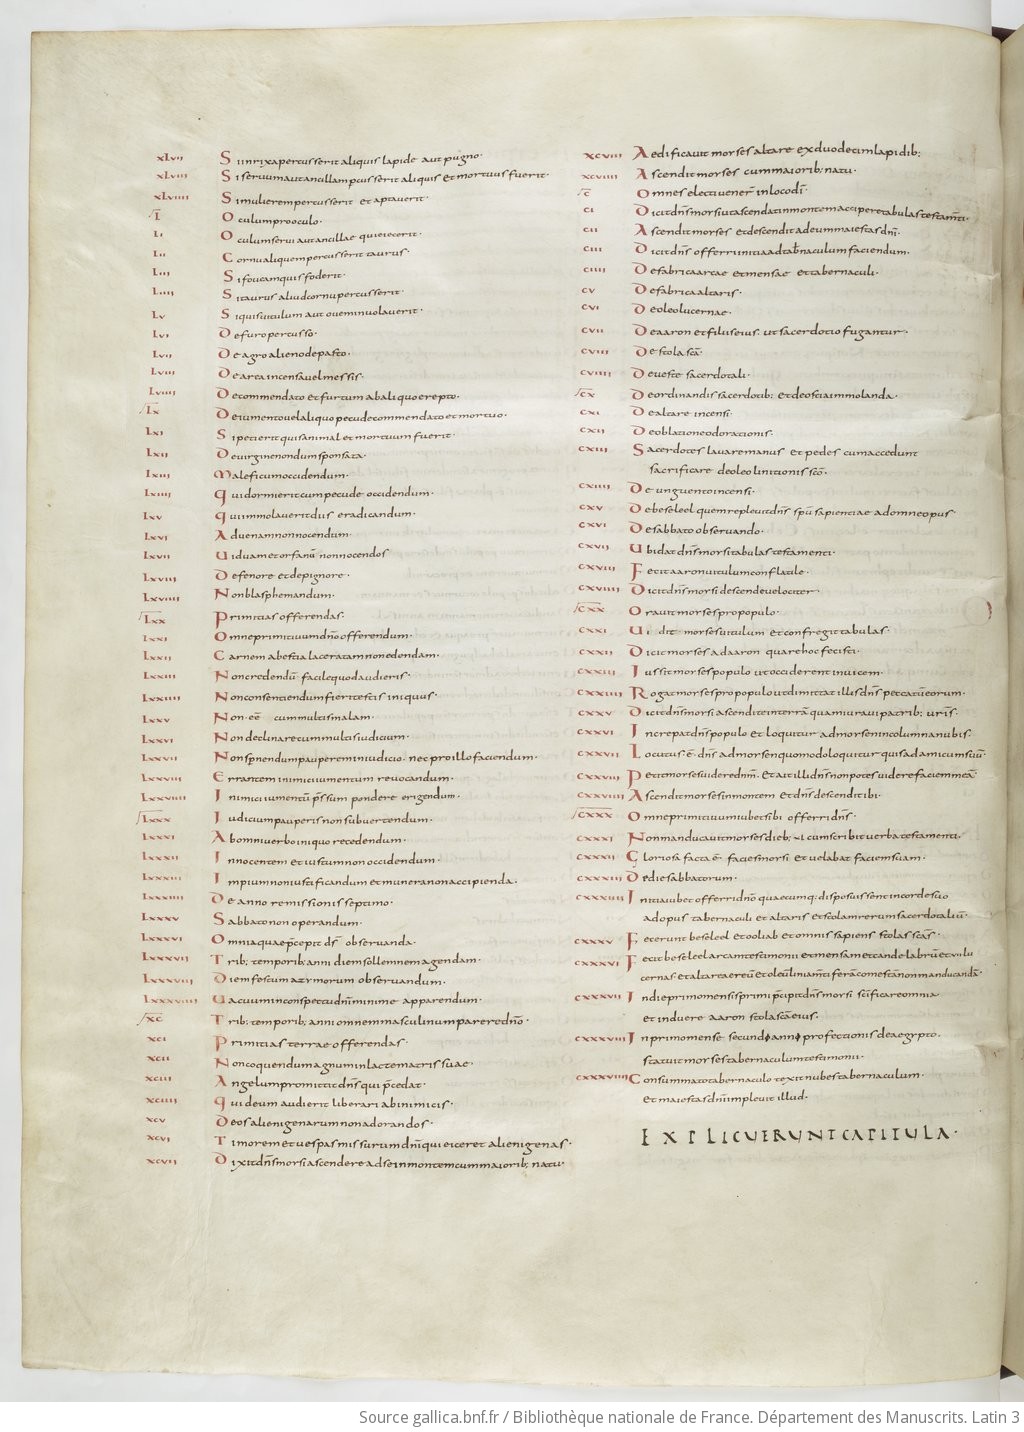 XLVII Si in rixa percusserit aliquis lapide aut pugno·
XLVIII Si servum aut ancillam pcusserit aliquis et mortuus fuerit·
XLVIIII Si mulierem percusserit et aptaverit·
L Oculum pro oculo·
LI Oculum servi aut ancillae qui eiecerit·
LII Cornu aliquem percusserit taurus·
LIII Si foveam quis foderit·
LIIII Si taurus aliud cornu percusserit·
LV Si quis vitulum aut ovem involaverit·
LVI De furo percusso·
LVII De agro alieno depasto·
LVIII De area incensa vel messis·
LVIIII De commendato et furtum ab aliquo erepto·
LX De iumento vel aliquo pecude commendato et mortuo·
LXI Si petierit quis animal et mortuum fuerit·
LXII De virgine nondum sponsata·
LXIII Maleficum occidendum·
LXIIII Qui dormierit cum pecude occidendum·
LXV Qui immolaverit diis eradicandum·
LXVI Advenam non nocendum·
LXVII Viduam et orfanū non nocendos
LXVIII De fenore et de pignore·
LXVIIII Non blasphemandum·
LXX Primitias offerendas·
LXXI Omne primitivum dn̄o offerendum·
LXXII Carnem a bestia laceratam non edendam·
LXXIII Non credendū facile quod audieris·
LXXIIII Non consentiendum fieri testis iniquus·
LXXV Non eē cum multis malam·
LXXVI Non declinare cum multis iudicium·
LXXVII Non spnendum pauperem in iudicio· nec pro illo faciendum·
LXXVIII Errantem inimici iumentum revocandum·
LXXVIIII Inimici iumentū p̄ssum pondere erigendum·
LXXX Iudicium pauperis non subvertendum·
LXXXI Abomni verbo iniquo recedendum·
LXXXII Innocentem et iustum non occidendum·
LXXXIII Impium non iustificandum et munera non accipienda·
LXXXIIII De anno remissionis septimo·
LXXXV Sabbato non operandum·
LXXXVI Omnia quae p̄cepit ds̄ observanda·
LXXXVII Trib; temporib; anni diem sollemnem agendam·
LXXXVIII Diem festum azymorum observandum·
LXXXVIIII Vacuum in conspectu dn̄i minime apparendum·
XC Trib; temporib; anni omne masculinum parere dn̄o·
XCI Primitias terrae offerendas·
XCII Non coquendum agnum in lacte matris suae·
XCIII Angelum promittit dn̄s qui p̄cedat·
XCIIII Qui deum audierit liberari ab inimicis·
XCV Deos alienigenarum non adorandos·
XCVI Timorem et vespas missurum dn̄m qui eiceret alienigenas·
XCVII Dixit dn̄s morsi ascendere ad se in montem cum maiorib; natu·
XCVIII Aedificavit morses altare ex duodecim lapidib;
XCVIIII Ascendit morses cum maiorib; natu·
C Omnes electi vener̄ in loco dī·
CI Dicit dn̄s morsi ut ascendat in montem accipere tabulas testam̄ti·
CII Ascendit morses et descendit ad eum maiestas dn̄i·
CIII Dicit dn̄s offerri initia ad tab̄naculum faciendum·
CIIII De fabrica arcae et mensae et tabernaculi·
CV De fabrica altaris·
CVI De oleo lucernae·
CVII De aaron et filus eius· ut sacerdotio fugantur·
CVIII De stola sc̄a·
CVIIII De veste sacerdotali·
CX De ordinandis sacerdotib; et de ostia immolanda·
CXI De altare incensi·
CXII De oblatione odorationis·
CXIII Sacerdotes lavare manus et pedes cum accedunt
sacrificare de oleo linitionis sc̄o·
CXIIII De unguento incensi·
CXV De beseleel quem replevit dn̄s spū sapientiae ad omne opus·
CXVI De sabbato observando·
CXVII Ubi dat dn̄s morsi tabulas testamenti·
CXVIII Fecit aaron vitulum conflatile·
CXVIIII Dicit dn̄s morsi descende velociter·
CXX Oravit morses pro populo·
CXXI Vidit morses vitulum et confregit tabulas·
CXXII Dicit morses ad aaron quare hoc fecisti·
CXXIII Iussit morses populo ut occiderent invicem·
CXXIIII Rogat morses pro populo ut dimittat illis dn̄s peccatū eorum·
CXXV Dicit dn̄s morsi ascendite in terrā quam iuravi patrib; vr̄is·
CXXVI Increpat dn̄s populo et loquitur ad morsen in columna nubis·
CXXVII Locutus ē dn̄s ad morsen quomodo loquitur quis ad amicum suū·
CXXVIII Petit morses videre dn̄m· et ait illi dn̄s non potes videre faciem meā·
CXXVIIII Ascendit morses in montem et dn̄s descendit ibi·
CXXX Omne primitivum iubet sibi offerri dn̄s·
CXXXI Non manducavit morses dieb; XL cum scribit verba testamenti·
CXXXII Gloriosa facta ē facies morsi et velabat faciem suam·
CXXXIII De die sabbatorum·
CXXXIIII Initia iubet offerri dn̄o quaecumq; disposuissent in corde suo
ad opus tabernaculi et altaris et stolam rerum sacerdotaliū·
CXXXV Fecerunt beseleel et ooliab et omnis sapiens stolas sc̄as·
CXXXVI Fecit beseleel arcam testimonii et mensam et candelabrū et vi lu
cernas· et altar ta aereū et oleū linim̄ti
CXXXVII In die primo mensis primi p̄cipit dn̄s morsi sc̄ificare omnia
et induere aaron stola sc̄a eius·
CXXXVIII In primo mense secundo anno profectionis de aegypto·
statuit morses tabernaculum testimonii·
CXXXVIIII Consummato tabernaculo texit nubes tabernaculum·
et maiestas dn̄i implevit illud·
EXPLICUERUNT CAPITULA·
Source gallica.bnf.fr / Bibliothèque nationale de France. Département des Manuscrits. Latin 3